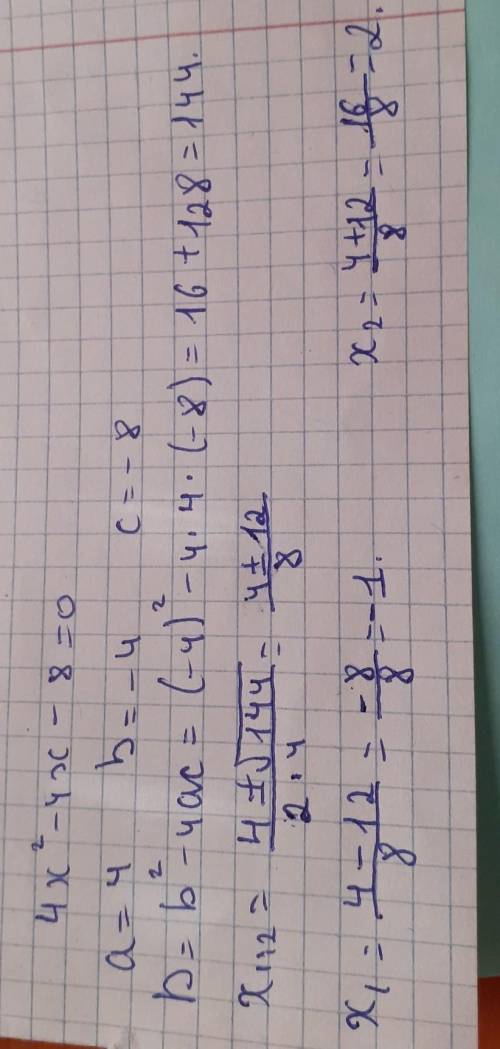 4x² - 4x - 8 = 0
a = 4 b = -4 c = -8
D = b² - 4ac = (-4)² - 4·4·(-8) = 16 + 128 = 144.
x₁,₂ = (4 ± √144)/(2·4) = (4 ± 12)/8
x₁ = (4 - 12)/8 = -8/8 = -1. x₂ = (4 + 12)/8 = 16/8 = 2.